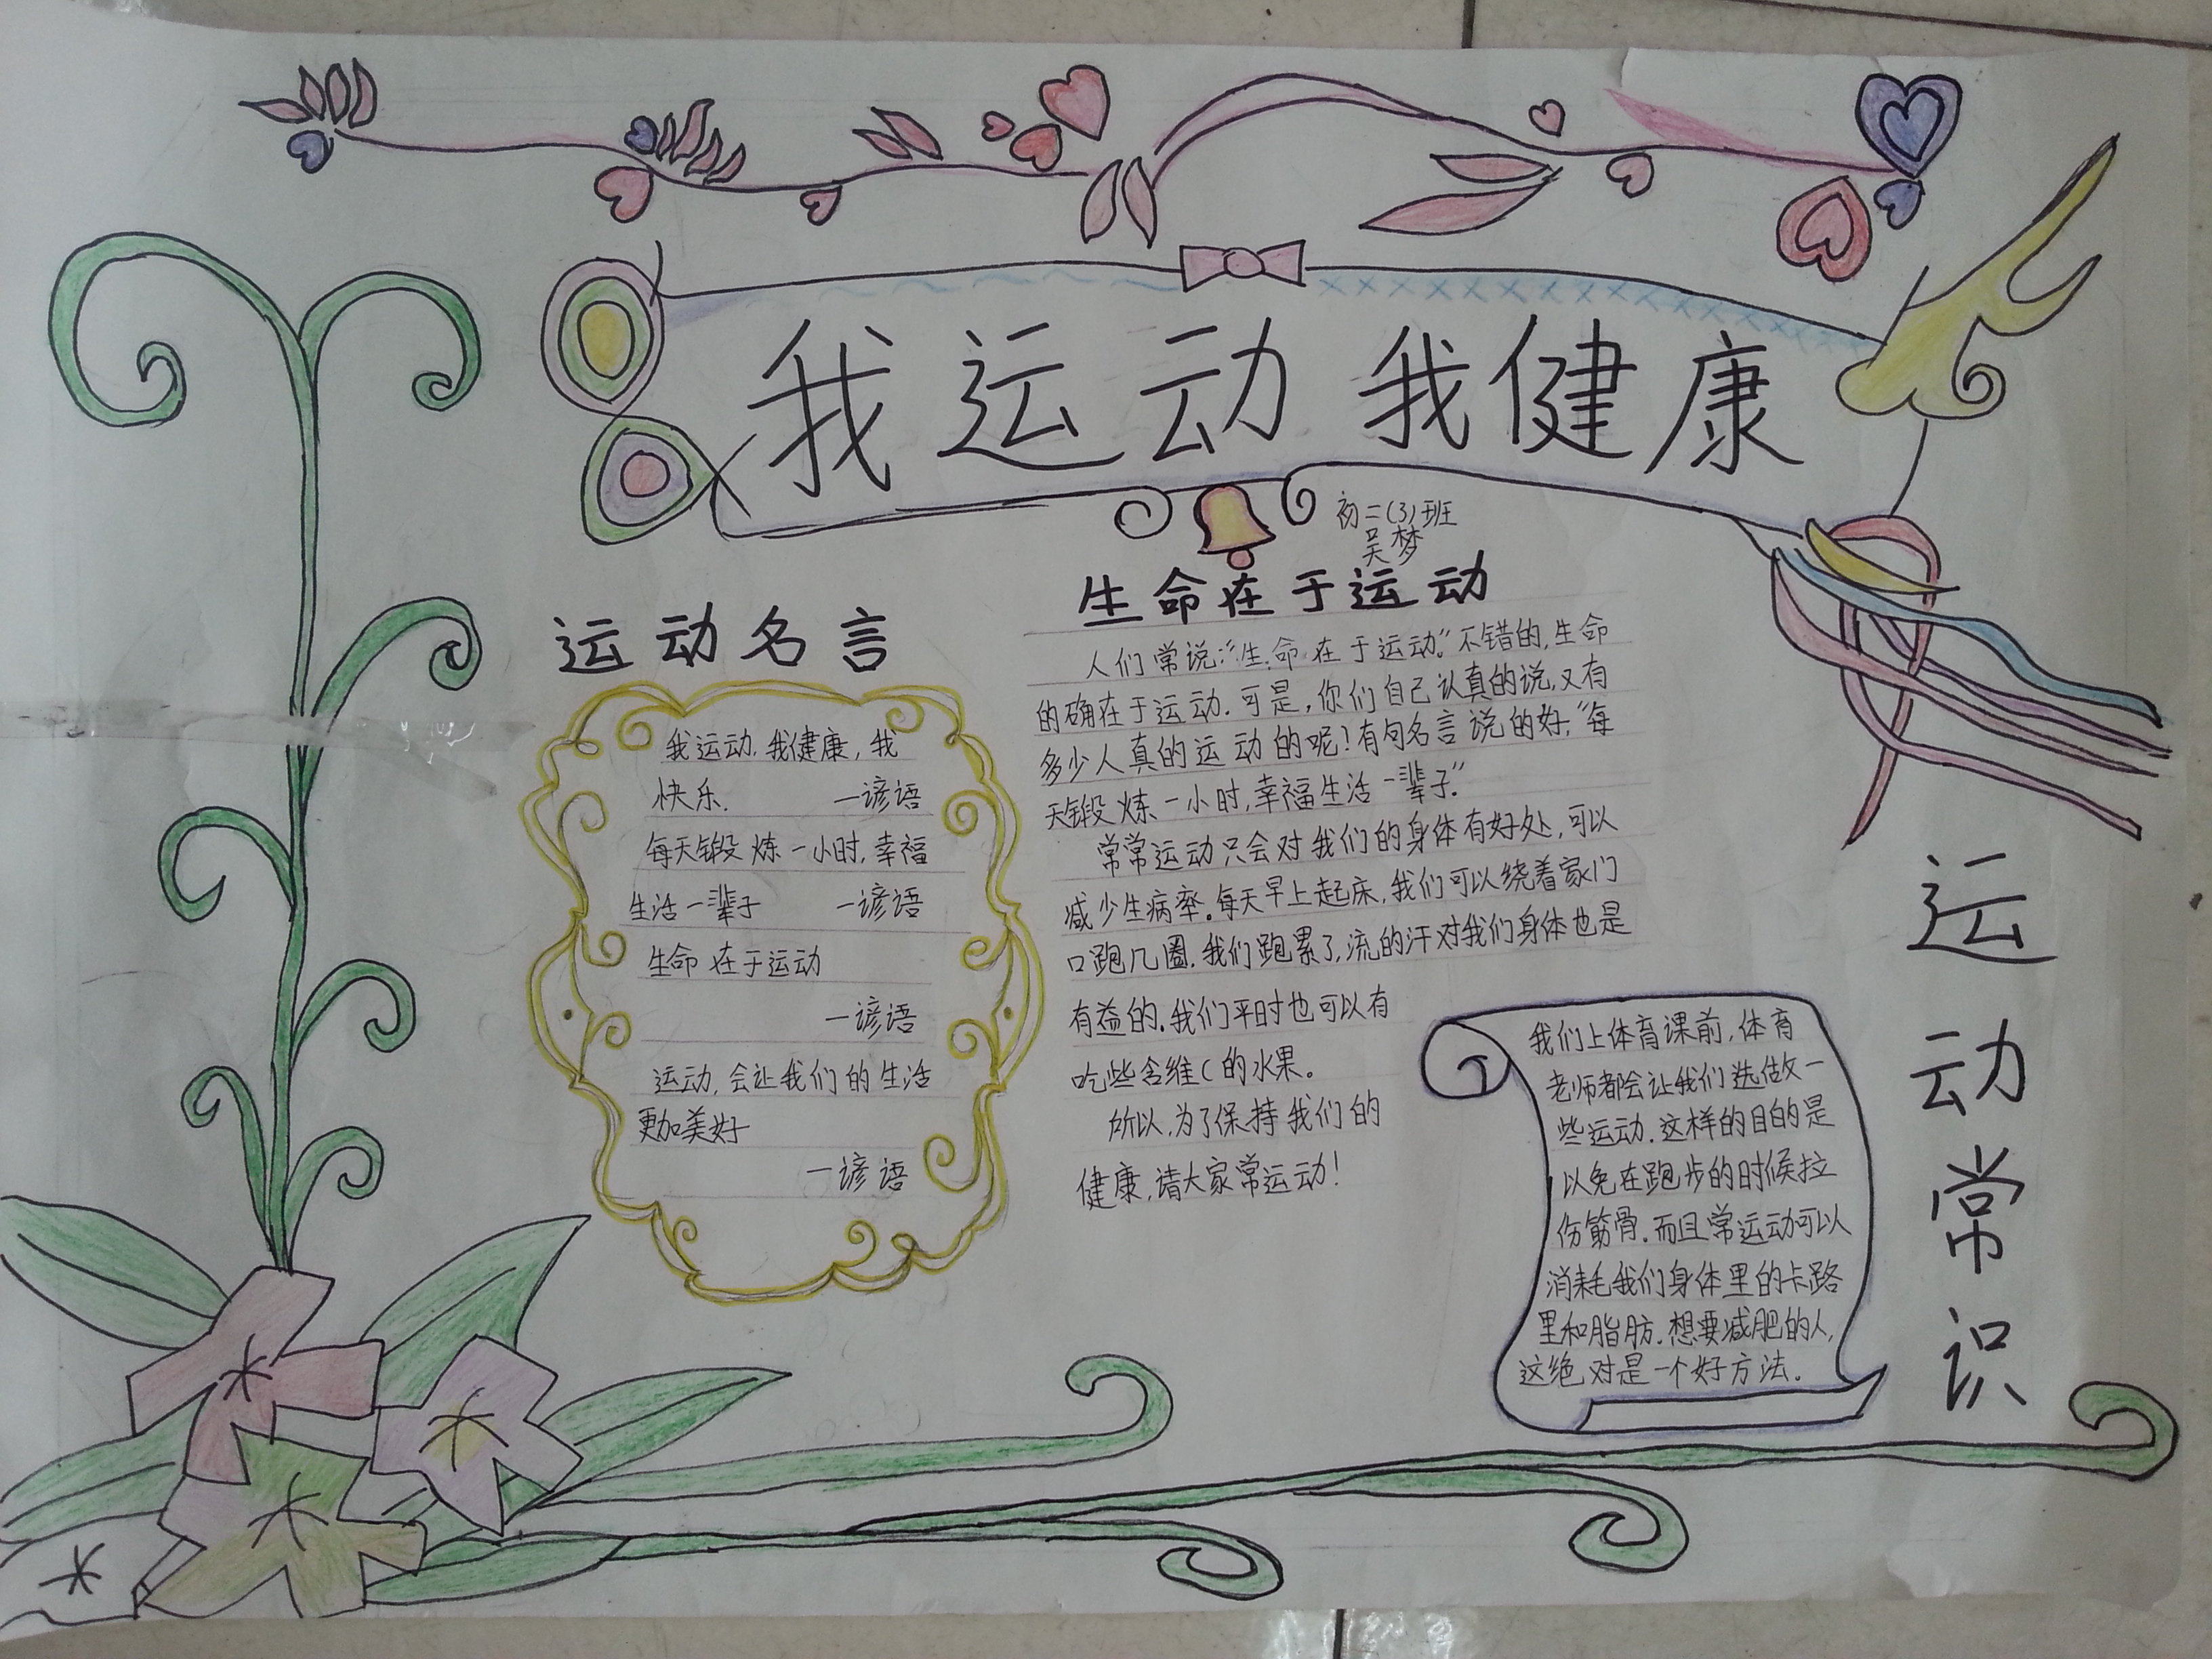 我运动 我健康
初二(3)班
吴梦
运动名言
我运动.我健康,我
快乐. —谚语
每天锻炼一小时,幸福
生活一辈子 —谚语
生命在于运动
—谚语
运动,会让我们的生活
更加美好
—谚语
生命在于运动
人们常说:“生命在于运动.”不错的,生命
的确在于运动.可是,你们自己认真的说,又有
多少人真的运动的呢?有句名言说的好,“每
天锻炼一小时,幸福生活一辈子.”
常常运动只会对我们的身体有好处,可以
减少生病率.每天早上起床,我们可以绕着家门
口跑几圈.我们跑累了,流的汗对我们身体也是
有益的.我们平时也可以有
吃些含维C的水果。
所以,为了保持我们的
健康,请大家常运动!
运动常识
我们上体育课前,体育
老师都会让我们先做一
些运动.这样的目的是
以免在跑步的时候拉
伤筋骨.而且常运动可以
消耗我们身体里的卡路
里和脂肪.想要减肥的人,
这绝对是一个好方法.